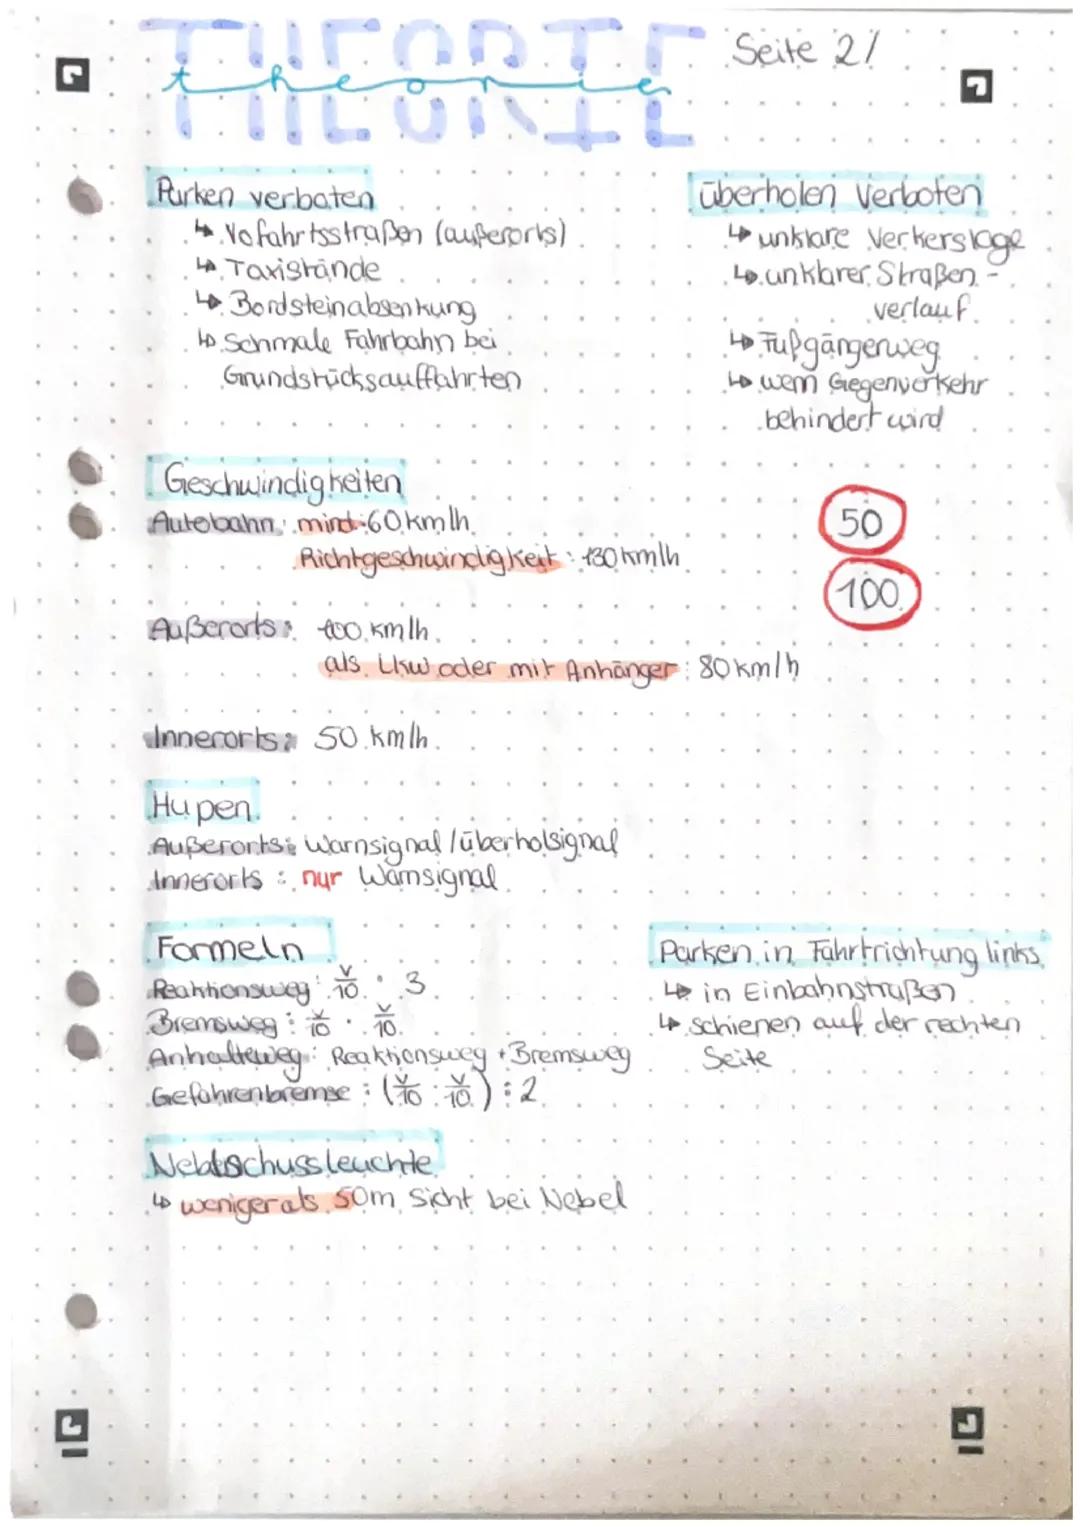 THEORIE
theorie
Seite 2/
Parken verboten
↳ Vofahrtsstraßen (außerorts)
↳ Taxistände
↳ Bordsteinabsenkung
↳ Schmale Fahrbahn bei
Grundstücksauffahrten
überholen Verboten
↳ unklare Verkerslage
↳ unklarer Straßen-
verlauf
↳ Fußgängerweg
↳ wenn Gegenverkehr
behindert wird
Geschwindigkeiten
Autobahn: mind: 60 km/h
Richtgeschwindigkeit: 130 km/h
50
100
Außerorts: 100 km/h
als Lkw oder mit Anhänger: 80 km/h
Innerorts: 50 km/h
Hupen
Außerorts: Warnsignal / überholsignal
Innerorts: nur Warnsignal
Formeln
Reaktionsweg: v/10 · 3
Bremsweg: v/10 · v/10
Anhalteweg: Reaktionsweg + Bremsweg
Gefahrenbremse: (v/10 · v/10) : 2
Parken in Fahrtrichtung links
↳ in Einbahnstraßen
↳ schienen auf der rechten
Seite
Nebelschussleuchte
↳ weniger als 50m Sicht bei Nebel